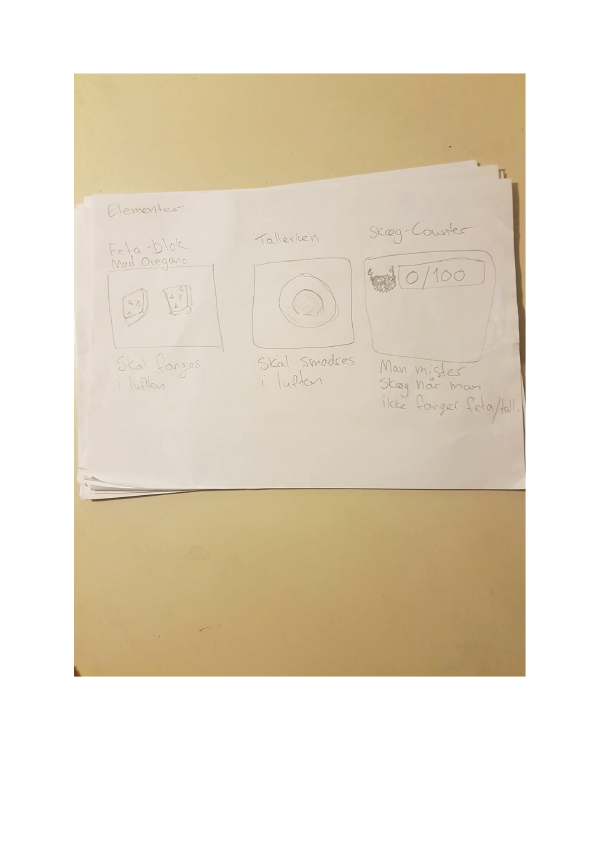 Elementer
Feta-blok
Med Oregano
Skal fanges
i luften
Tallerken
Skal smadres
i luften
Skæg-Counter
0/100
Man mister
Skæg når man
ikke fanger feta/tall.